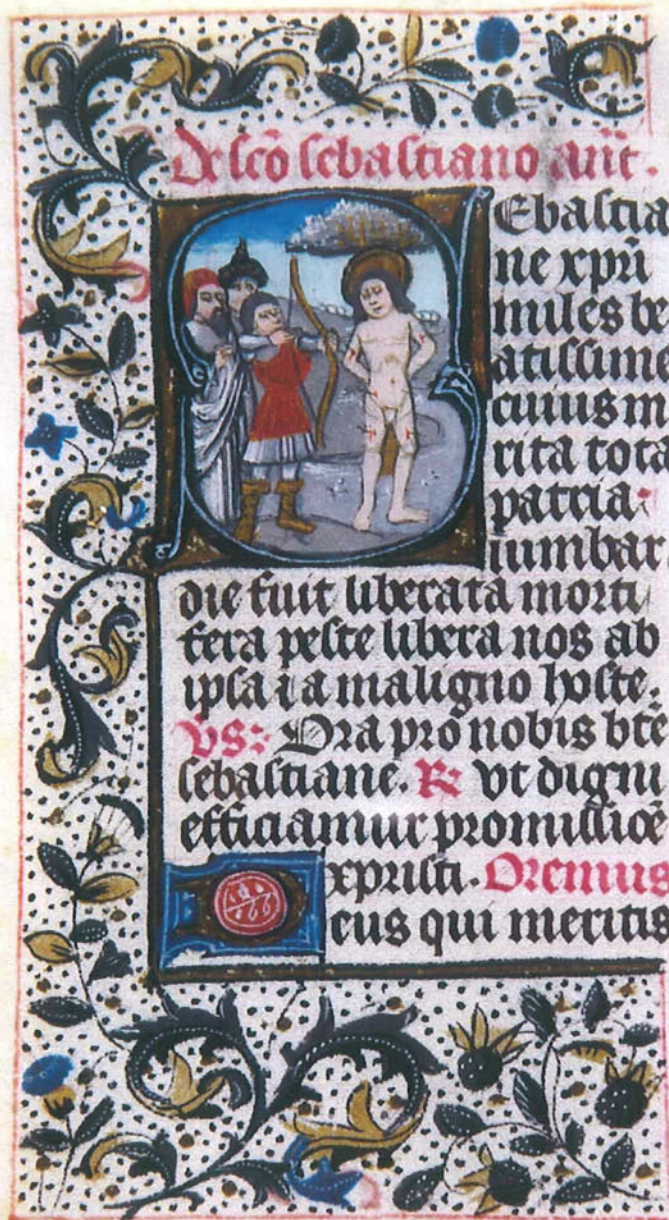 De sc̄o sebastiano ant̄.
Ebastia
ne xp̄ri
miles be
atissime
cuius m
rita tota
patria
lumbar
die fuit liberata morti
fera peste libera nos ab
ipsa ⁊ a maligno hoste.
VS: Ora pro nobis btē
sebastiane. R: vt digni
efficiamur promissiōe
xpristi. Oremus
Deus qui meritis